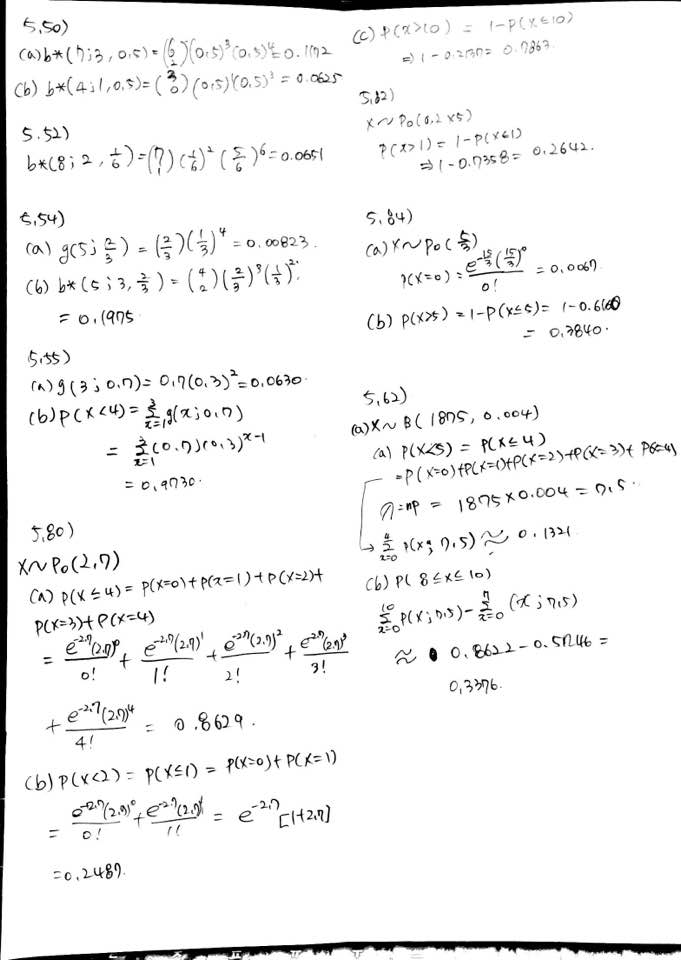 5,50)
(a) b*(7;3, 0,5)=(6 2)(0,5)³(0,5)⁴=0.1172
(b) b*(4;1,0,5)=(3 0)(0,5)¹(0,5)³ = 0.0625
5.52)
b*(8;2, 1/6)=(7 1)(1/6)²(5/6)⁶=0.0651
5,54)
(a) g(5; 2/3) = (2/3)(1/3)⁴ = 0.00823.
(b) b*(5;3, 2/3) = (4 2)(2/3)³(1/3)².
= 0.1975
5,55)
(a) g(3; 0,7)= 0,7(0,3)²=0,0630.
(b) P(X<4)= Σ³ₓ₌₁ g(x;0,7)
= Σ³ₓ₌₁ (0.7)(0,3)ˣ⁻¹
= 0,9730.
5,80)
X~Po(2,7)
(a) P(X≤4) = P(X=0)+P(x=1)+P(X=2)+
P(X=3)+P(X=4)
= e⁻²·⁷(2,7)⁰/0! + e⁻²·⁷(2,7)¹/1! + e⁻²·⁷(2,7)²/2! + e⁻²·⁷(2,7)³/3!
+ e⁻²·⁷(2,7)⁴/4! = 0.8629.
(b) P(X<2) = P(X≤1) = P(X=0)+P(X=1)
= e⁻²·⁷(2,7)⁰/0! + e⁻²·⁷(2,7)¹/1! = e⁻²·⁷ [1+2,7]
=0,2487.
(c) P(X>10) = 1-P(X≤10)
⇒ 1-0.2137= 0.7863
5,82)
X~Po(0,2×5)
P(X>1) = 1-P(X≤1)
⇒ 1-0.7358= 0,2642.
5,84)
(a) X~Po(5/3)
P(X=0) = e^(-15/3)(15/3)⁰/0! = 0,0067.
(b) P(X>5) = 1-P(X≤5)= 1-0.6160
= 0,3840.
5,62)
(a) X~B(1875, 0.004)
(a) P(X<5) = P(X≤4)
=P(X=0)+P(X=1)+P(X=2)+P(X=3)+P(X=4)
λ=np = 1875×0.004 = 7,5.
→ Σ⁴ₓ₌₀ P(x; 7,5) ≈ 0.1321
(b) P(8≤x≤10)
Σ¹⁰ₓ₌₀ P(x;7,5) - Σ⁷ₓ₌₀ (x;7,5)
≈ 0.8622-0.5246=
0,3376.